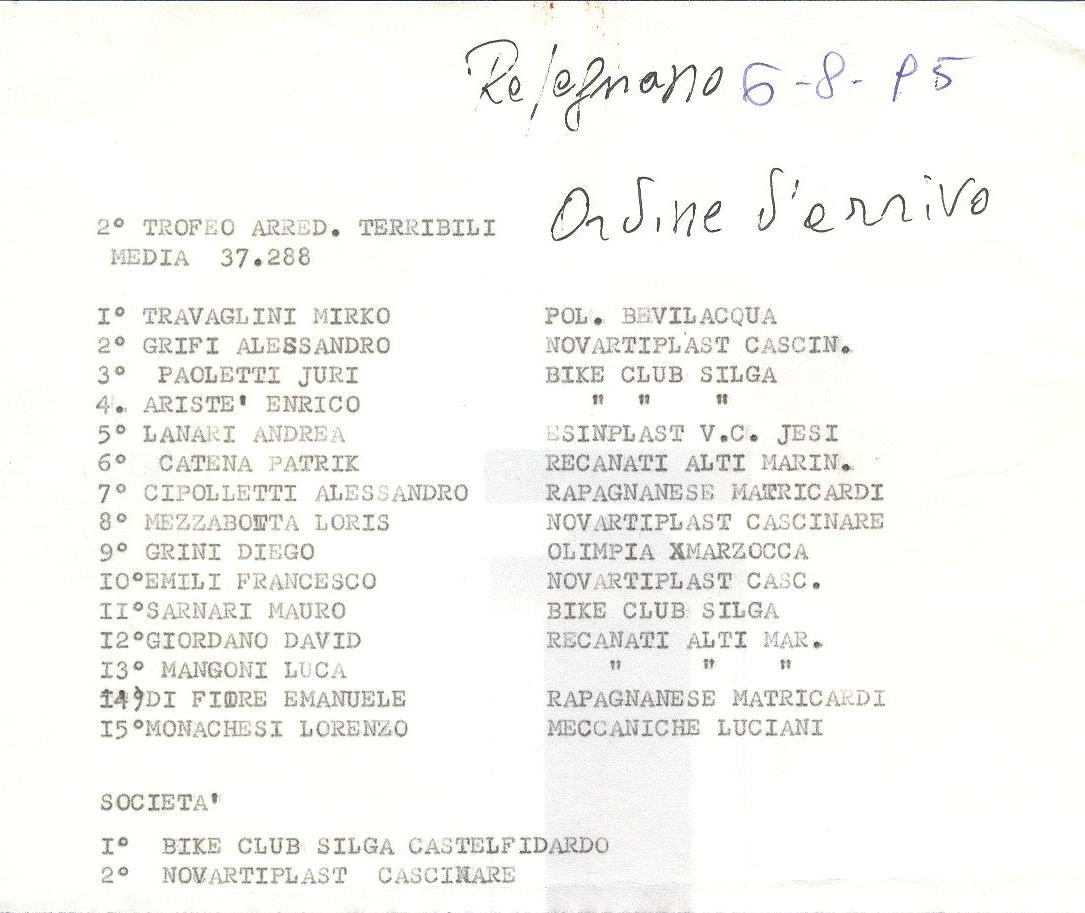 Rapagnano 6-8-95
Ordine d'arrivo
2° TROFEO ARRED. TERRIBILI
MEDIA 37.288
I° TRAVAGLINI MIRKO POL. BEVILACQUA
2° GRIFI ALESSANDRO NOVARTIPLAST CASCIN.
3° PAOLETTI JURI BIKE CLUB SILGA
4. ARISTE' ENRICO " " "
5° LANARI ANDREA ESINPLAST V.C. JESI
6° CATENA PATRIK RECANATI ALTI MARIN.
7° CIPOLLETTI ALESSANDRO RAPAGNANESE MATRICARDI
8° MEZZABOTTA LORIS NOVARTIPLAST CASCINARE
9° GRINI DIEGO OLIMPIA XMARZOCCA
IO°EMILI FRANCESCO NOVARTIPLAST CASC.
II°SARNARI MAURO BIKE CLUB SILGA
I2°GIORDANO DAVID RECANATI ALTI MAR.
I3° MANGONI LUCA " " "
I4°DI FIORE EMANUELE RAPAGNANESE MATRICARDI
I5°MONACHESI LORENZO MECCANICHE LUCIANI
SOCIETA'
I° BIKE CLUB SILGA CASTELFIDARDO
2° NOVARTIPLAST CASCINARE